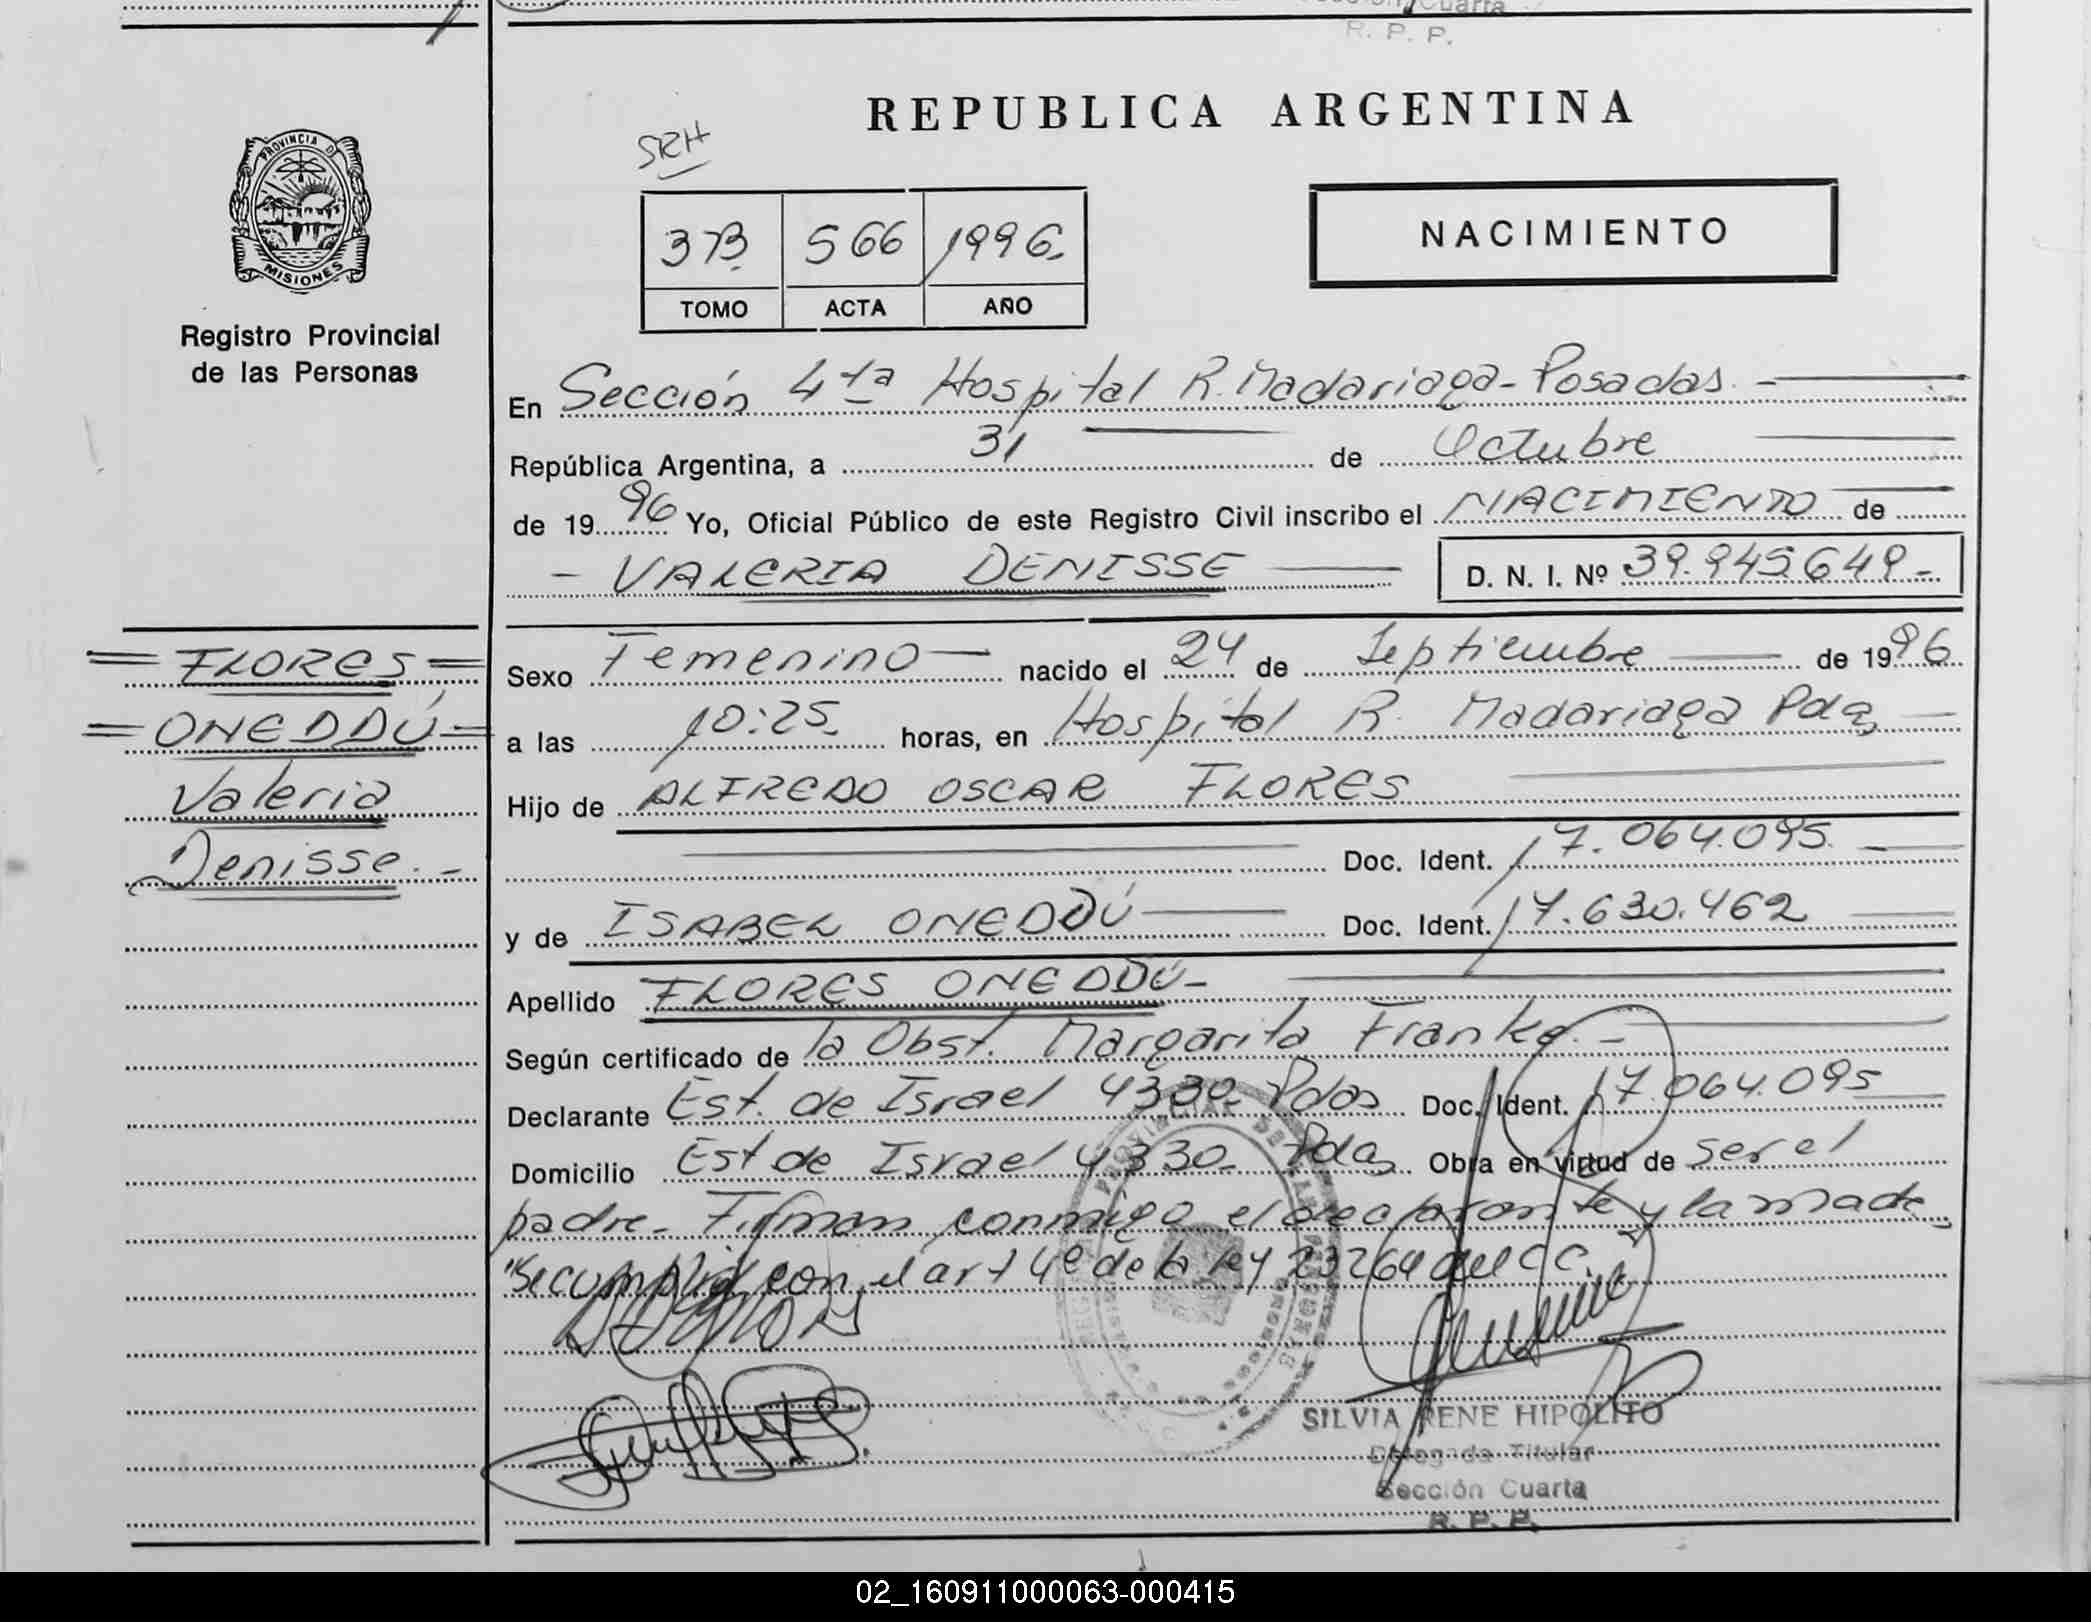 Cuarta
R. P. P.
REPUBLICA ARGENTINA
SRH
PROVINCIA DE
MISIONES
Registro Provincial
de las Personas
373 566 1996.
TOMO ACTA AÑO
NACIMIENTO
En Sección 4ta Hospital R. Madariaga - Posadas. -
República Argentina, a 31 de Octubre
de 1996 Yo, Oficial Público de este Registro Civil inscribo el NACIMIENTO de
- VALERIA DENISSE D. N. I. Nº 39.945.649.-
= FLORES =
= ONEDDÚ =
Valeria
Denisse. -
Sexo Femenino nacido el 24 de Septiembre de 1996
a las 10:25. horas, en Hospital R. Madariaga Pdas
Hijo de ALFREDO OSCAR FLORES
Doc. Ident. 17.064.095.
y de ISABEL ONEDDÚ Doc. Ident. 17.630.462
Apellido FLORES ONEDDÚ -
Según certificado de la Obst. Margarita Franke. -
Declarante Est. de Israel 4330. Pdas Doc. Ident. 17.064.095
Domicilio Est de Israel 4330. Pdas Obra en virtud de ser el
padre. Firman conmigo el declarante y la madre
"Se cumplió con el art 4º de la ley 23264 del C C.
SILVIA IRENE HIPOLITO
Delegada Titular
Sección Cuarta
R. P. P.
02_160911000063-000415